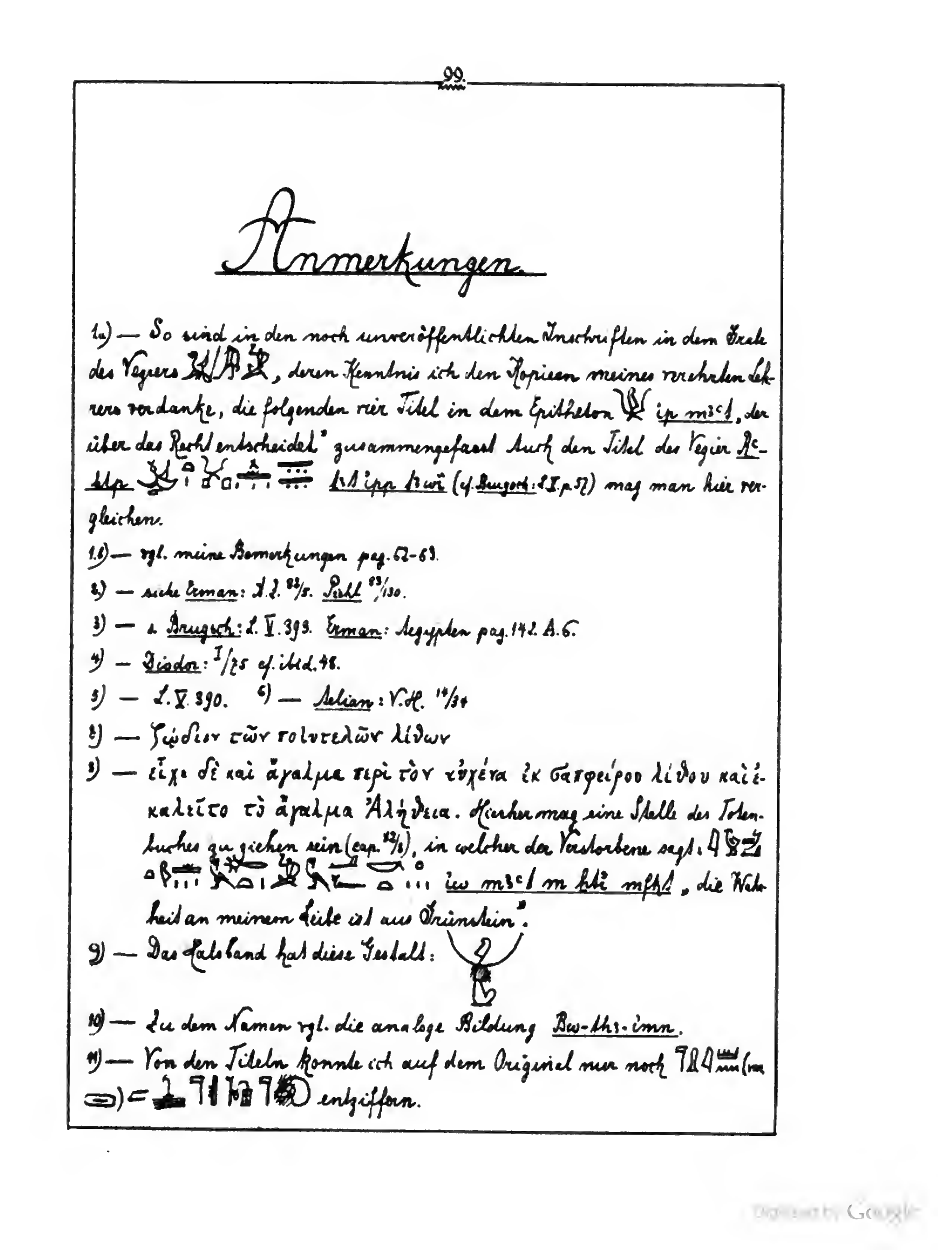 99.
Anmerkungen.
1a) — So sind in den noch unveröffentlichten Inschriften in dem Grabe
des Veziers , deren Kenntnis ich den Kopieen meines verehrten Leh-
rers verdanke, die folgenden vier Titel in dem Epitheton ip m3ꜥt „der
über das Recht entscheidet" zusammengefasst. Auch den Titel des Vezier Rꜥ-
htp (cf. Brugsch: L. V. p. 57) mag man hier ver-
gleichen.
1.b) — vgl. meine Bemerkungen pag. 62-63.
2.) — siehe Erman: Piehl
3) — s. Brugsch: L. V. 393. Erman: Aegypten pag. 142. A. 6.
4) — Diodor: I/75 cf. ibid. 48.
5) — L. V. 390. 6) — Aelian: V. H. 14/34
) — ζῴδιον τῶν πολυτελῶν λίθων
8) — εἶχε δὲ καὶ ἄγαλμα περὶ τὸν αὐχένα ἐκ σαπφείρου λίθου καὶ ἐ-
καλεῖτο τὸ ἄγαλμα Ἀλήθεια. Hierher mag eine Stelle des Toten-
buches zu ziehen sein (cap. ), in welcher der Verstorbene sagt:
iw m3ꜥt m ẖti mfkt „die Wahr-
heit an meinem Leibe ist aus Grünstein".
9) — Das Halsband hat diese Gestalt:
10) — Zu dem Namen vgl. die analoge Bildung Bw-ths-imn.
11) — Von den Titeln konnte ich auf dem Original nur noch
entziffern.
Digitized by Google